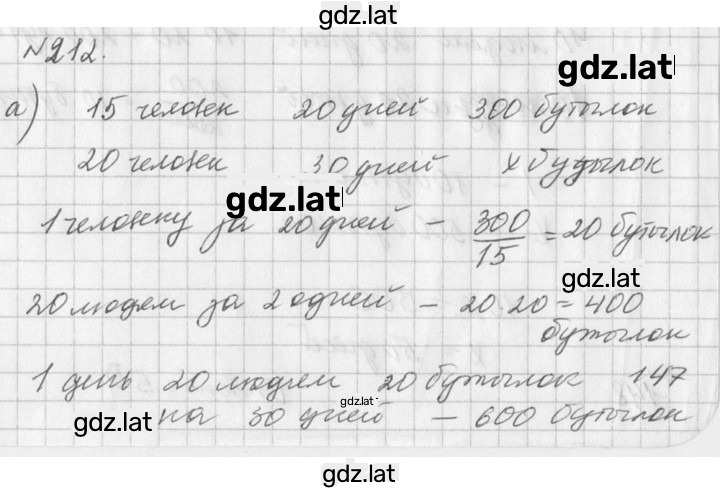 gdz.lat
№212.
gdz.lat
а) 15 человек 20 дней 300 бутылок
20 человек 30 дней x бутылок
gdz.lat
1 человеку за 20 дней – 300/15 = 20 бутылок
gdz.lat
20 людям за 20 дней – 20.20 = 400
бутылок
1 день 20 людям 20 бутылок 147
gdz.lat
gdz.lat на 30 дней – 600 бутылок
gdz.lat